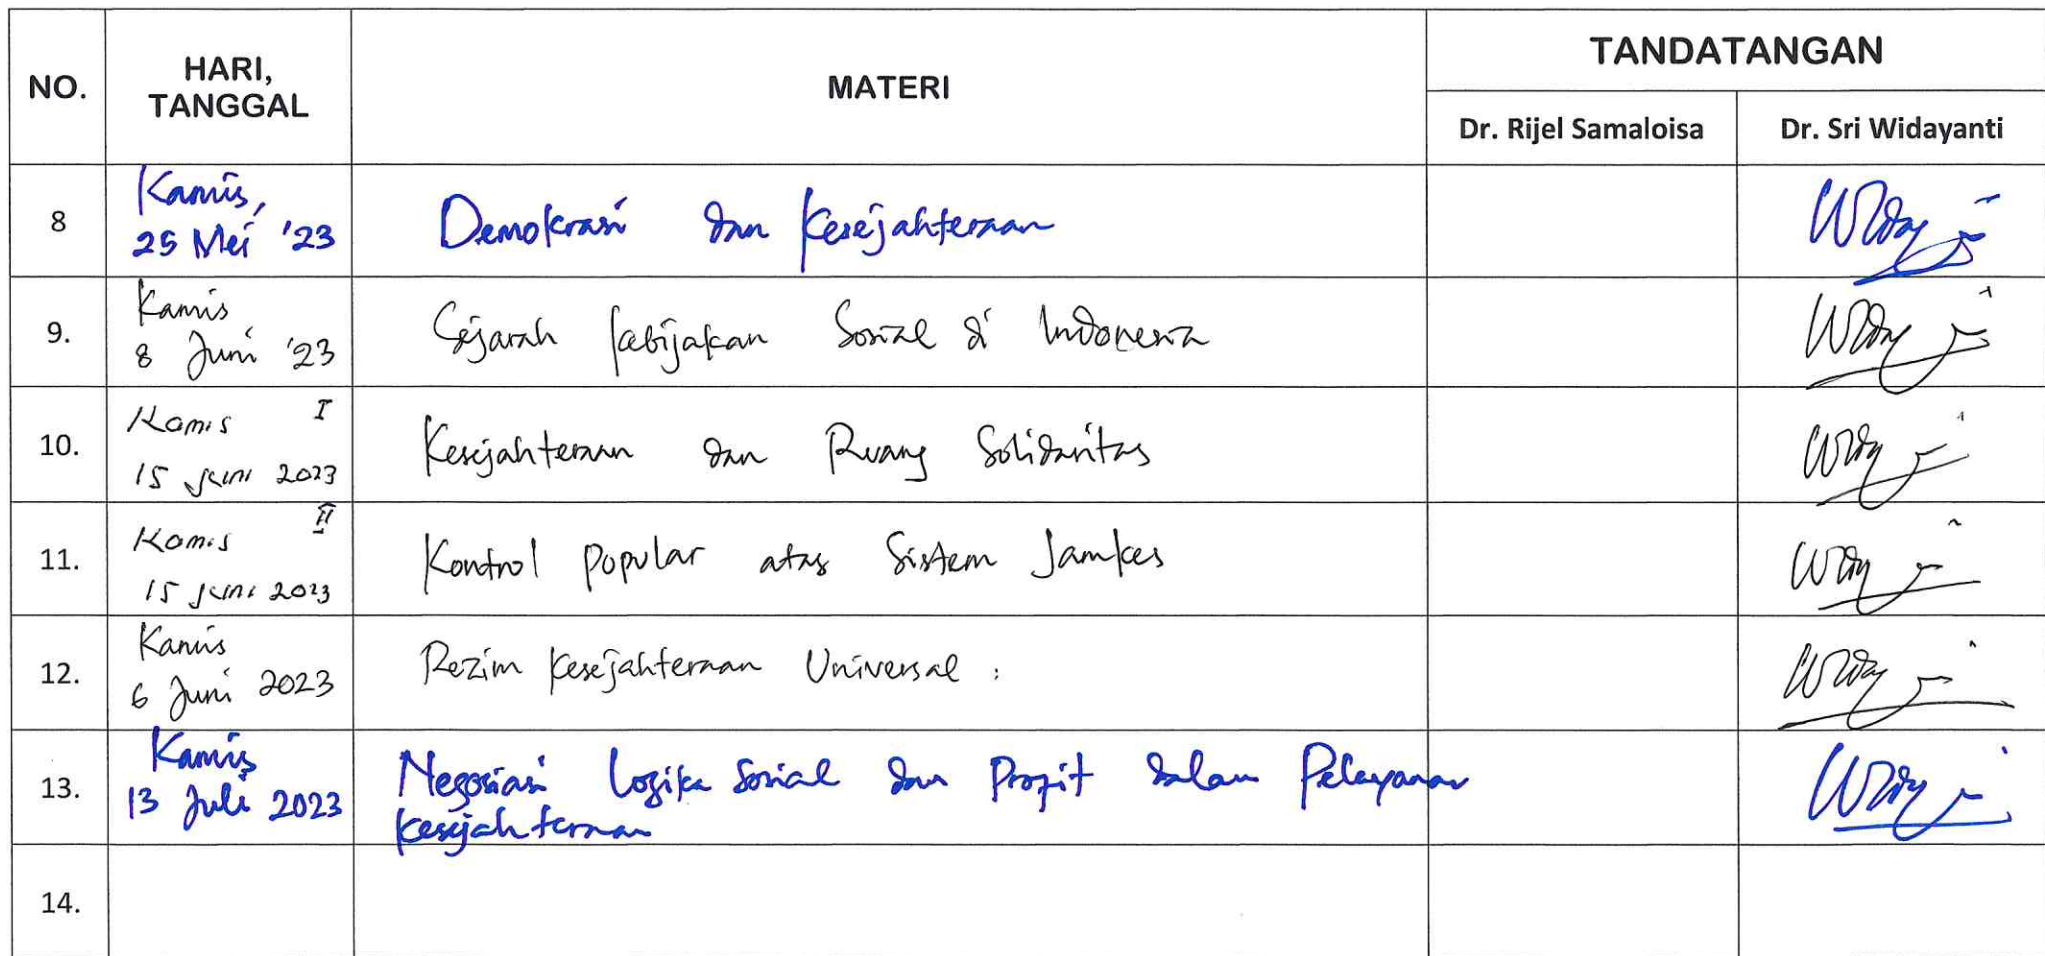 NO.
HARI,
TANGGAL
MATERI
TANDATANGAN
Dr. Rijel Samaloisa
Dr. Sri Widayanti
8
Kamis,
25 Mei '23
Demokrasi dan Kesejahteraan
9.
Kamis
8 Juni '23
Sejarah kebijakan Sosial di Indonesia
10.
Kamis I
15 Juni 2023
Kesejahteraan dan Ruang Solidaritas
11.
Kamis II
15 Juni 2023
Kontrol Popular atas Sistem Jamkes
12.
Kamis
6 Juni 2023
Rezim Kesejahteraan Universal .
13.
Kamis
13 Juli 2023
Negosiasi Logika Sosial dan Profit dalam Pelayanan
Kesejahteraan
14.